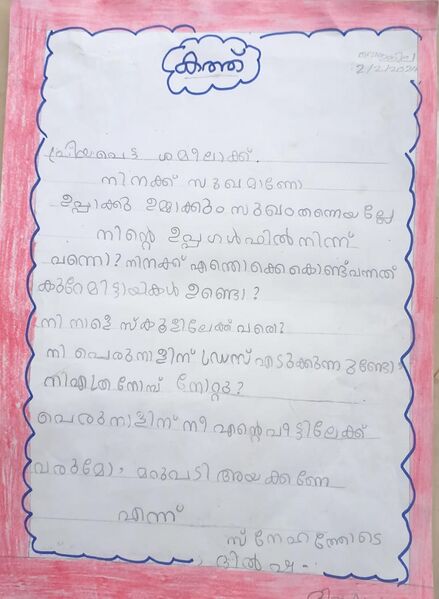 കത്ത്
2/2/2024
പ്രിയപെട്ട ശമീലാക്ക്.
നിനക്ക് സുഖമാണോ
ഉപ്പാക്കു ഉമ്മാക്കും സുഖം തന്നെയല്ലേ
നിന്റെ ഉപ്പ ഗൾഫിൽ നിന്ന്
വന്നൊ? നിനക്ക് എന്തൊക്കെ കൊണ്ട്വന്നത്
കുറേ മിട്ടായികൾ ഉണ്ടൊ?
നീ നാളെ സ്കൂളിലേക്ക് വരെ?
നീ പെരുന്നാളിന് ഡ്രസ് എടുക്കുന്നുണ്ടോ
നീ എത്ര നോമ്പ് നോറ്റു?
പെരുന്നാളിന് നീ എന്റെ വീട്ടിലേക്ക്
വരുമോ, മറുപടി അയക്കണേ
എന്ന്
സ്നേഹത്തോടെ
ദിൽഷ